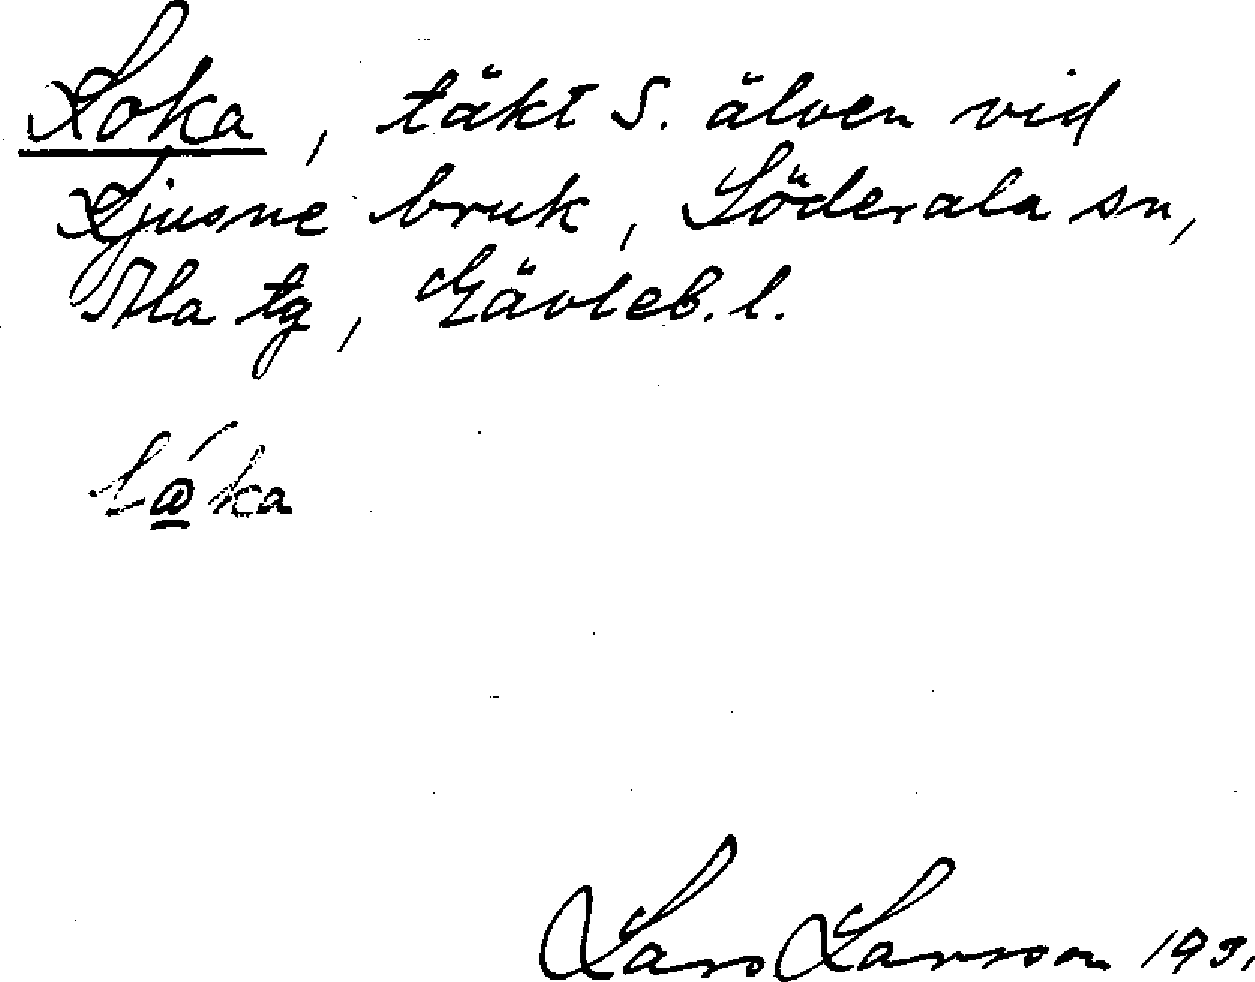 Loka, täkt S. älven vid
Ljusne bruk, Söderala sn,
Ala tg, Gävleb. l.
Lars Larsson 1931